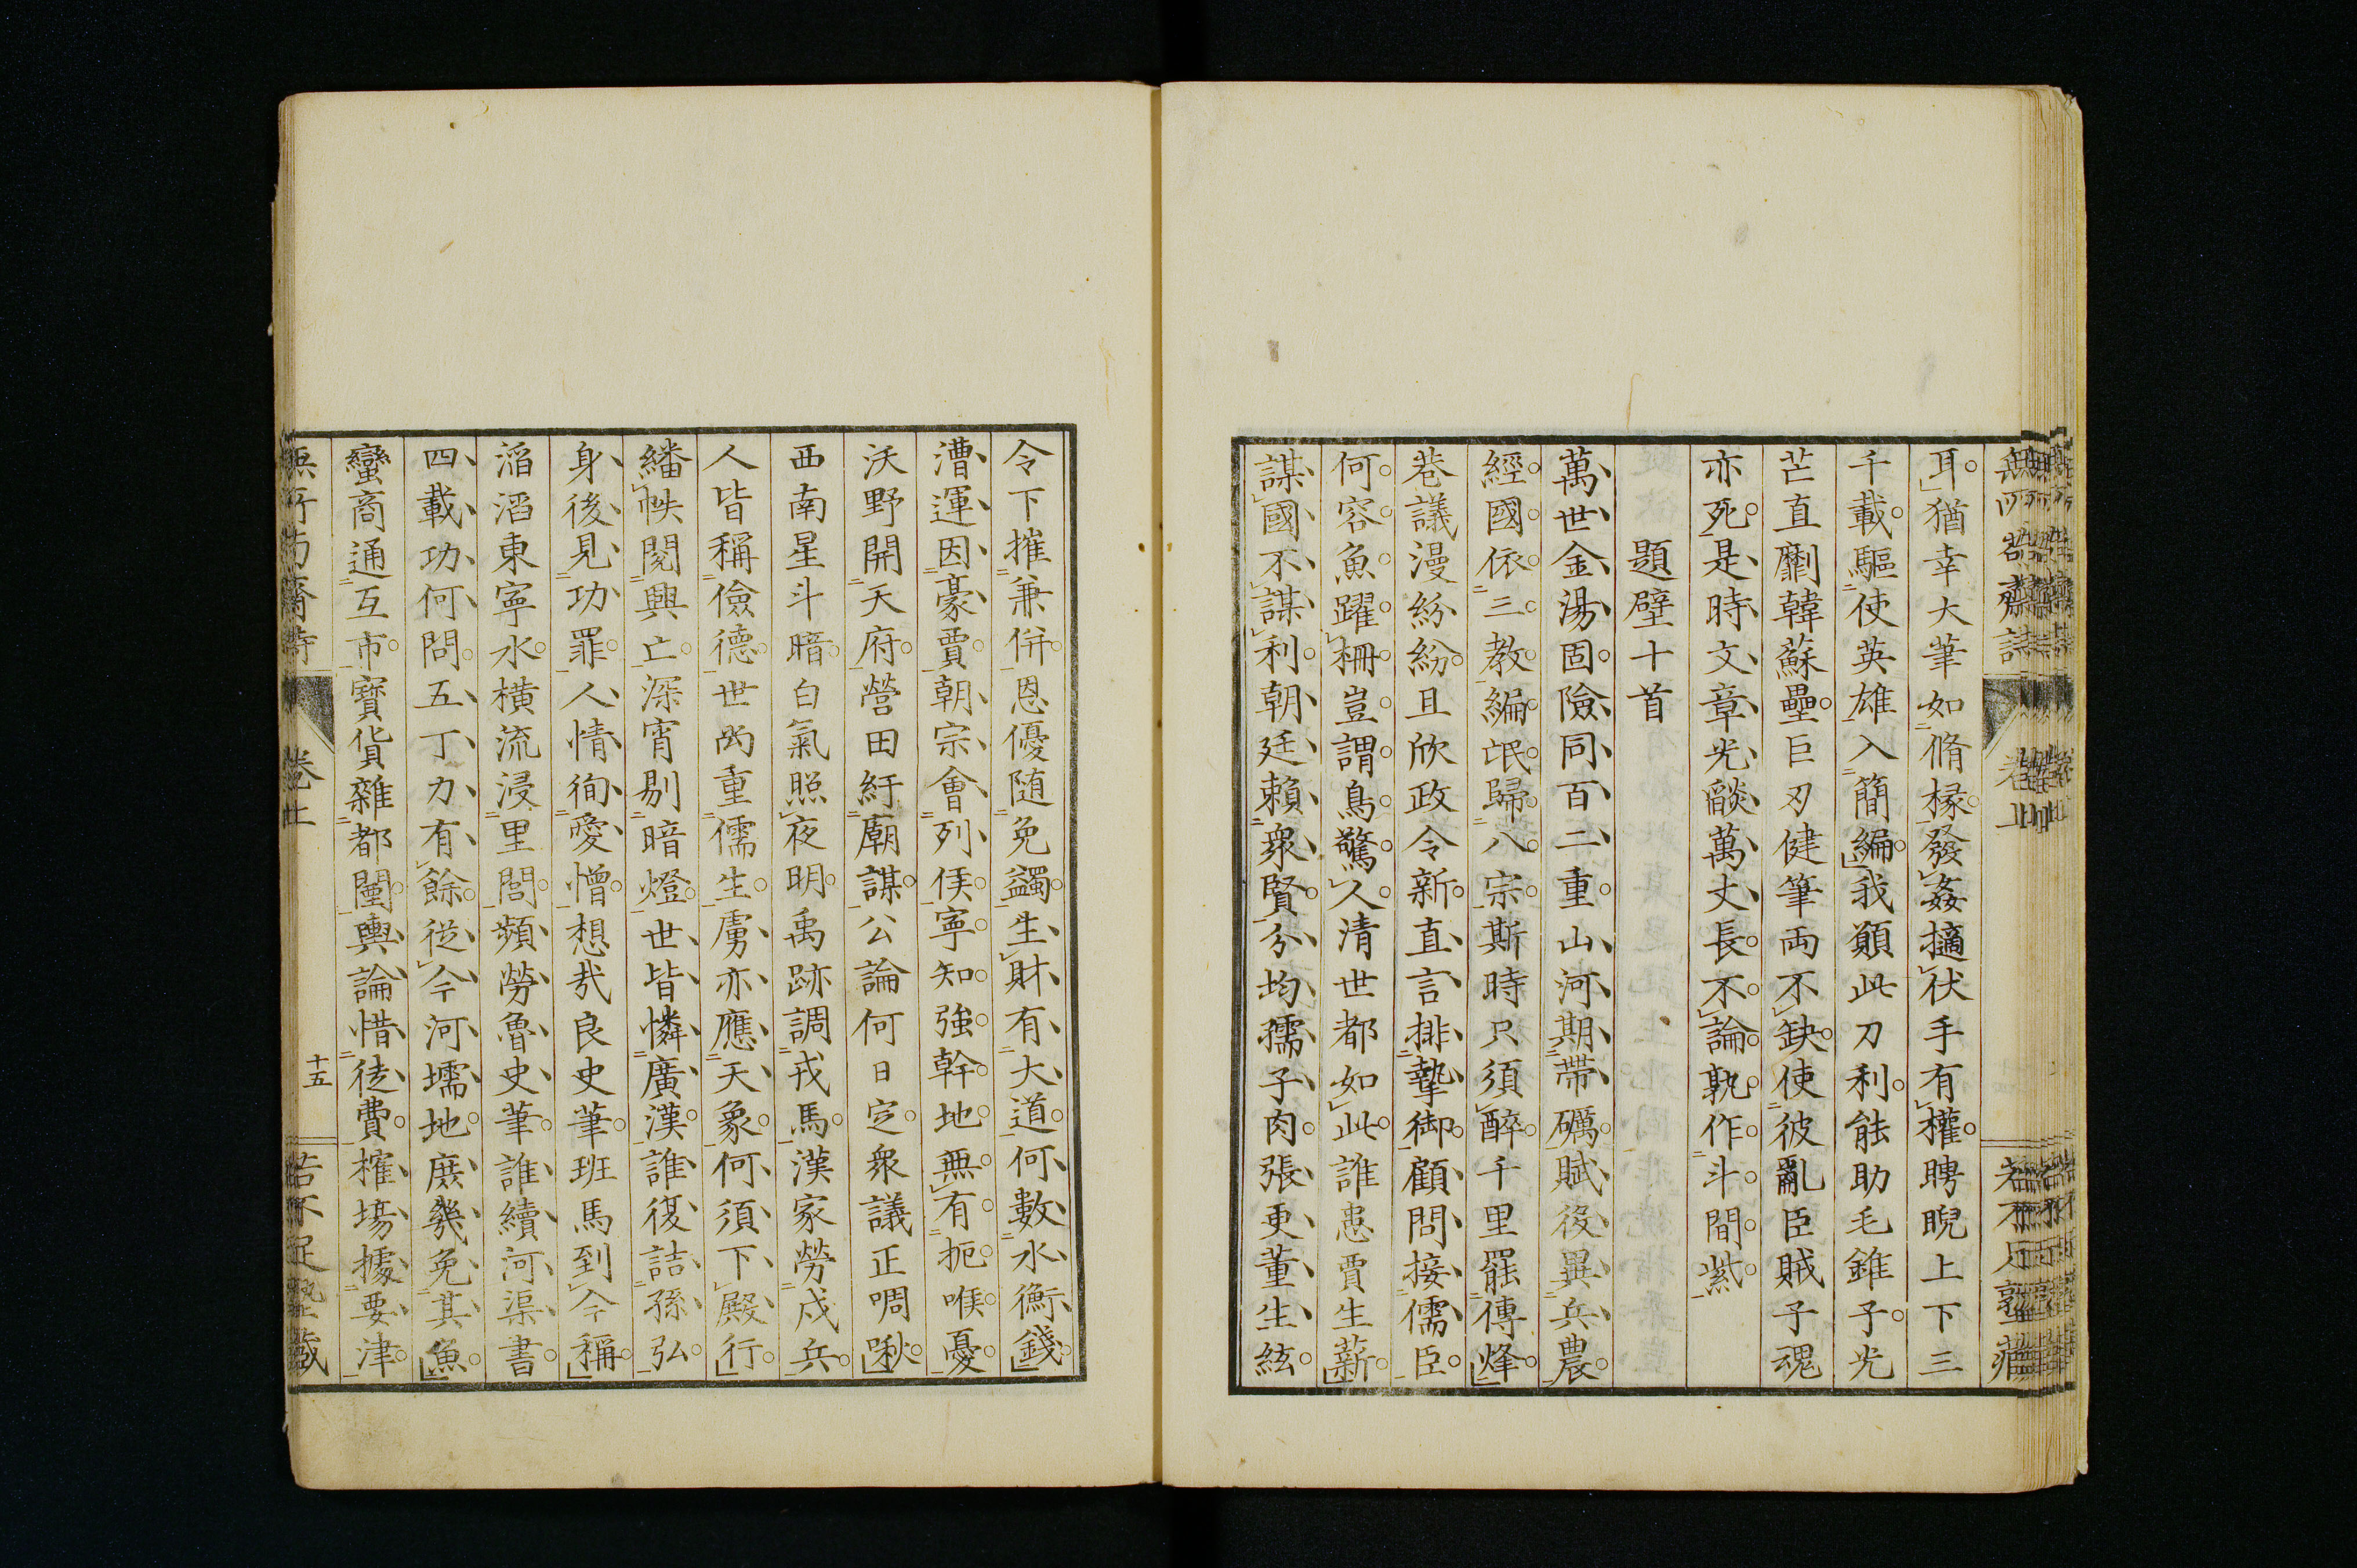 耳猶幸大筆如脩椽發姦擿伏手有權聘睨上下三
千載驅使英雄入簡編我願此刀利能助毛錐子光
芒直劘韓蘇壘巨刃健筆両不缺使彼亂臣賊子魂
亦死是時文章光燄萬丈長不論孰作斗間紫
題壁十首
萬世金湯固險同百二重山河期帶礪賦役異兵農
經國依三教編氓歸八宗斯時只須醉千里罷傳烽
巷議漫紛紛且欣政令新直言排摯御顧問接儒臣
何容魚躍柵豈謂鳥驚人清世都如此誰恚賈生薪
謀國不謀利朝廷賴衆賢分均孺子肉張更董生絃
令下摧兼併恩優随免蠲生財有大道何數水衡錢
漕運因豪賈朝宗會列侯寧知強幹地無有扼喉憂
沃野開天府營田紆廟謀公論何日定衆議正啁啾
西南星斗暗白氣照夜明禹跡調戎馬漢家勞戍兵
人皆稱儉德世尚重儒生虜亦應天象何須下殿行
繙帙閱興亡深宵剔暗燈世皆憐廣漢誰復詰孫弘
身後見功罪人情徇愛憎想哉良史筆班馬到今稱
滔滔東寧水横流浸里閭頻勞魯史筆誰續河渠書
四載功何問五丁力有餘從今河壖地庶幾免其魚
蠻商通互市寶貨雜都闉輿論惜徒費搉場據要津
卷上
十五